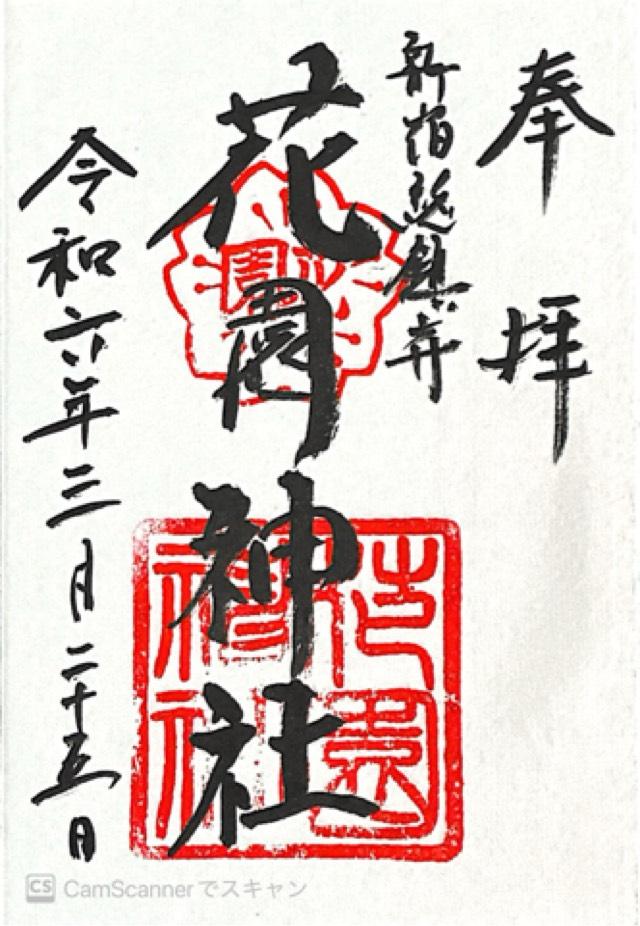 奉拝
新宿総鎮守
花園神社
令和六年三月二十五日
花園
花園神社
CS CamScannerでスキャン